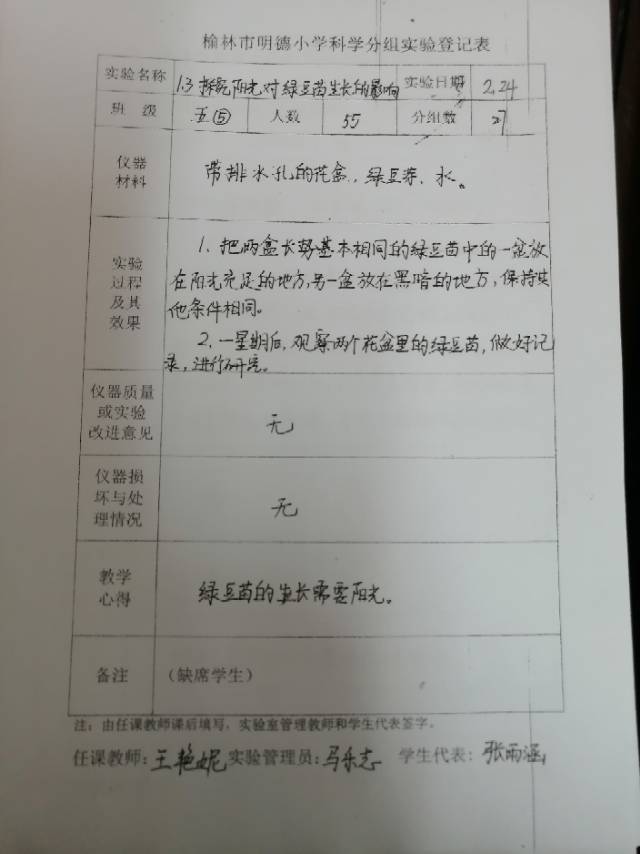 榆林市明德小学科学分组实验登记表
实验名称 1.3 探究阳光对绿豆苗生长的影响 实验日期 2.24
班 级 五⑤ 人数 55 分组数 27
仪器材料 带排水孔的花盆、绿豆芽、水。
实验过程及其效果
1. 把两盆长势基本相同的绿豆苗中的一盆放
在阳光充足的地方,另一盆放在黑暗的地方,保持其
他条件相同。
2. 一星期后,观察两个花盆里的绿豆苗,做好记
录,进行研究。
仪器质量或实验改进意见 无
仪器损坏与处理情况 无
教学心得 绿豆苗的生长需要阳光。
备注 (缺席学生)
注:由任课教师课后填写,实验室管理教师和学生代表签字。
任课教师:王艳妮 实验管理员:马乐志 学生代表:张雨涵